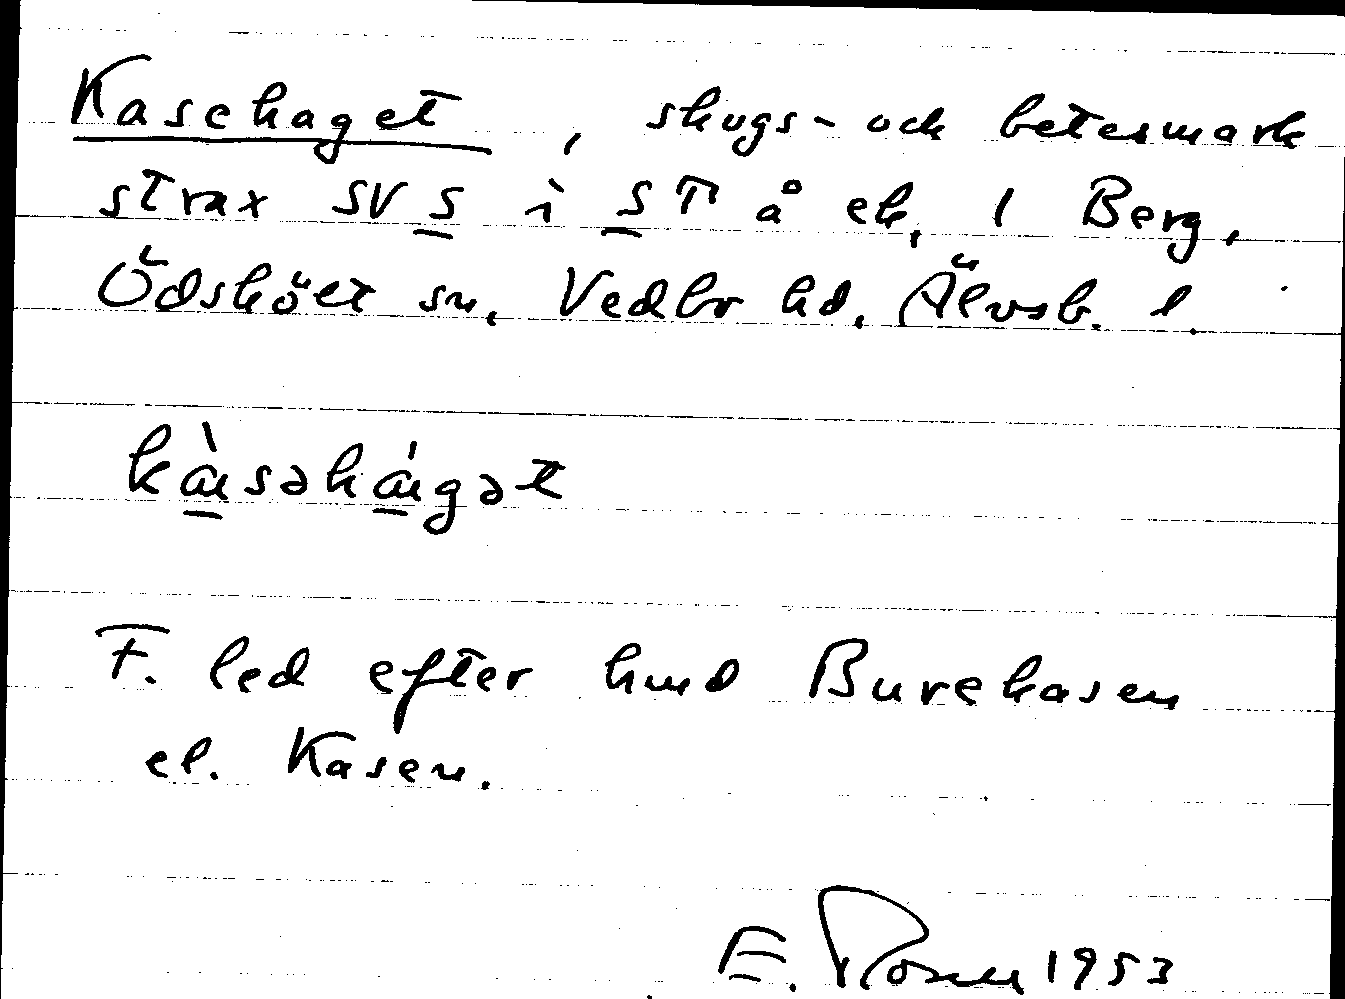 Kasehaget, skogs- och betesmark
strax SV S i ST å ek. 1 Berg,
Ödskölt sn, Vedbo hd, Älvsb. l.
kàsəhágət
F. led efter hmd Burekasen
el. Kasen.
E. Rosell 1953